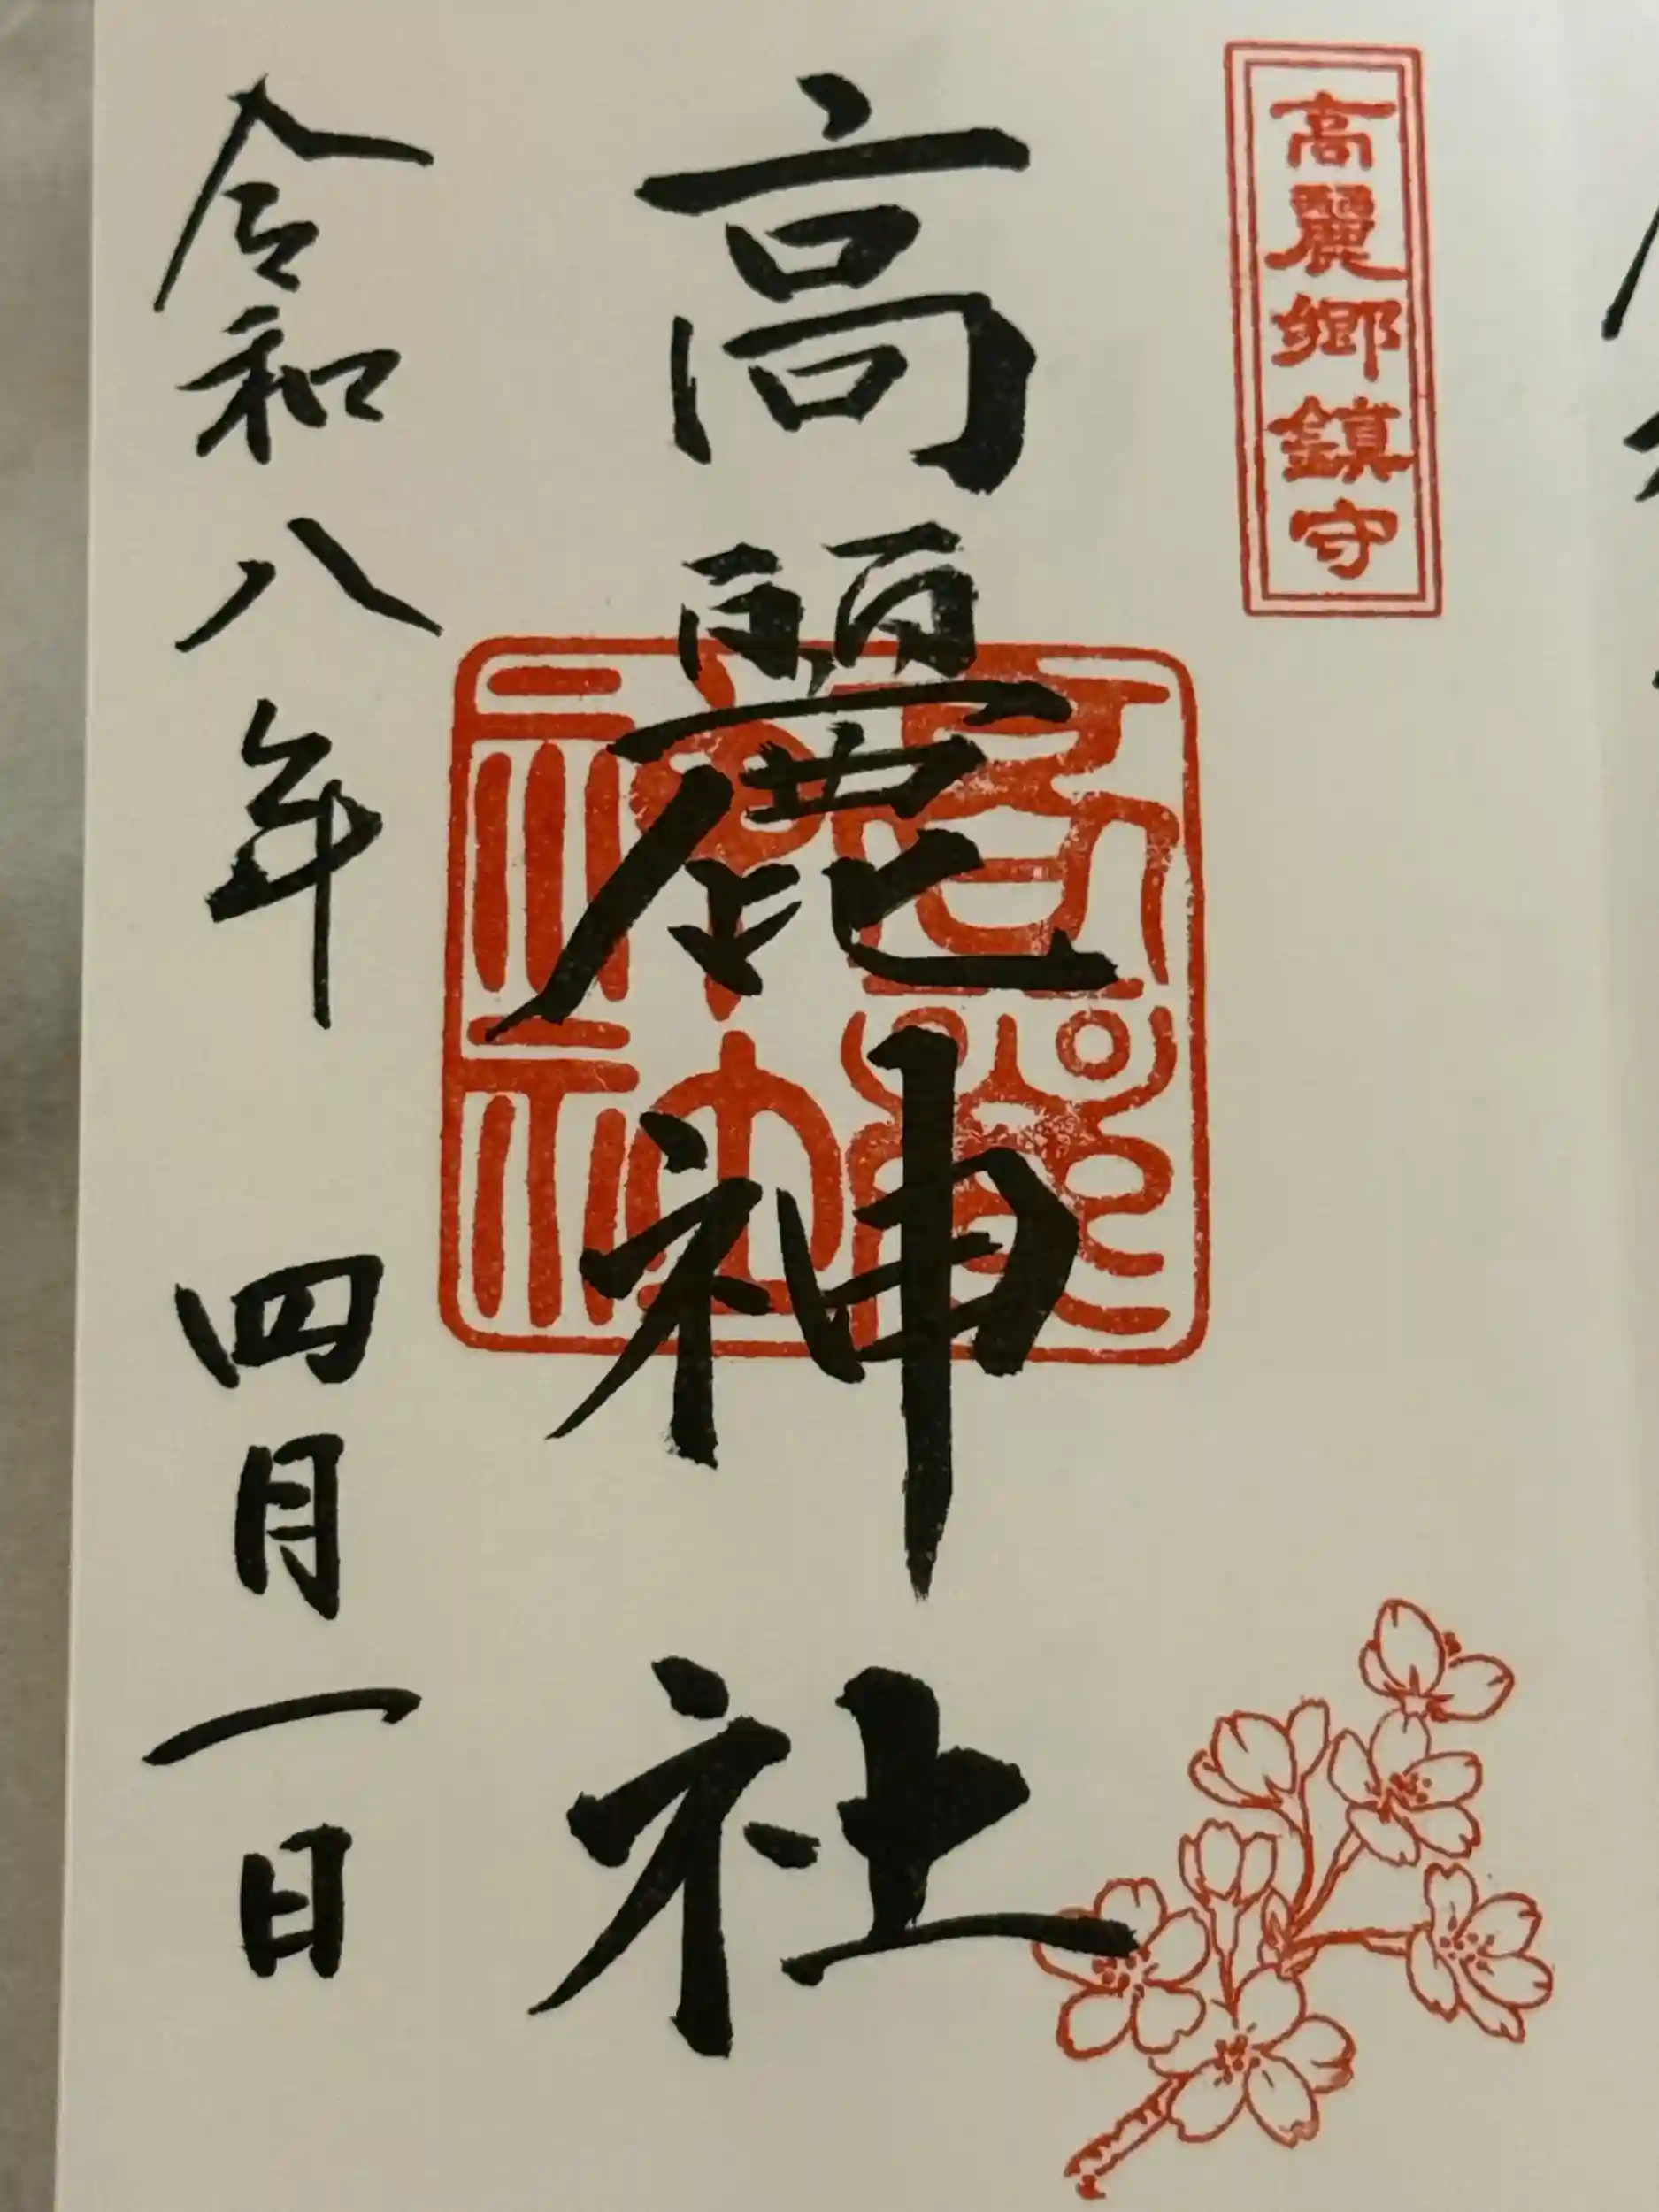 高麗郷鎮守
高麗神社
高麗神社
令和八年 四月一日